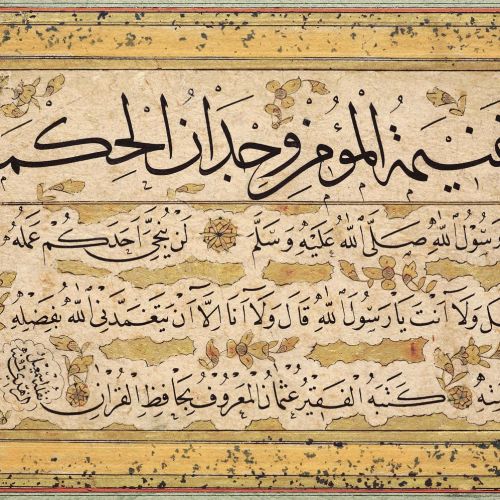 غنيمة المؤمن وجدان الحكم
رسول الله صلى الله عليه وسلم لن ينجي احدكم عمله
ولا انت يا رسول الله قال ولا انا الا ان يتغمدني الله بفضله
كتبه الفقير عثمان المعروف بحافظ القرآن